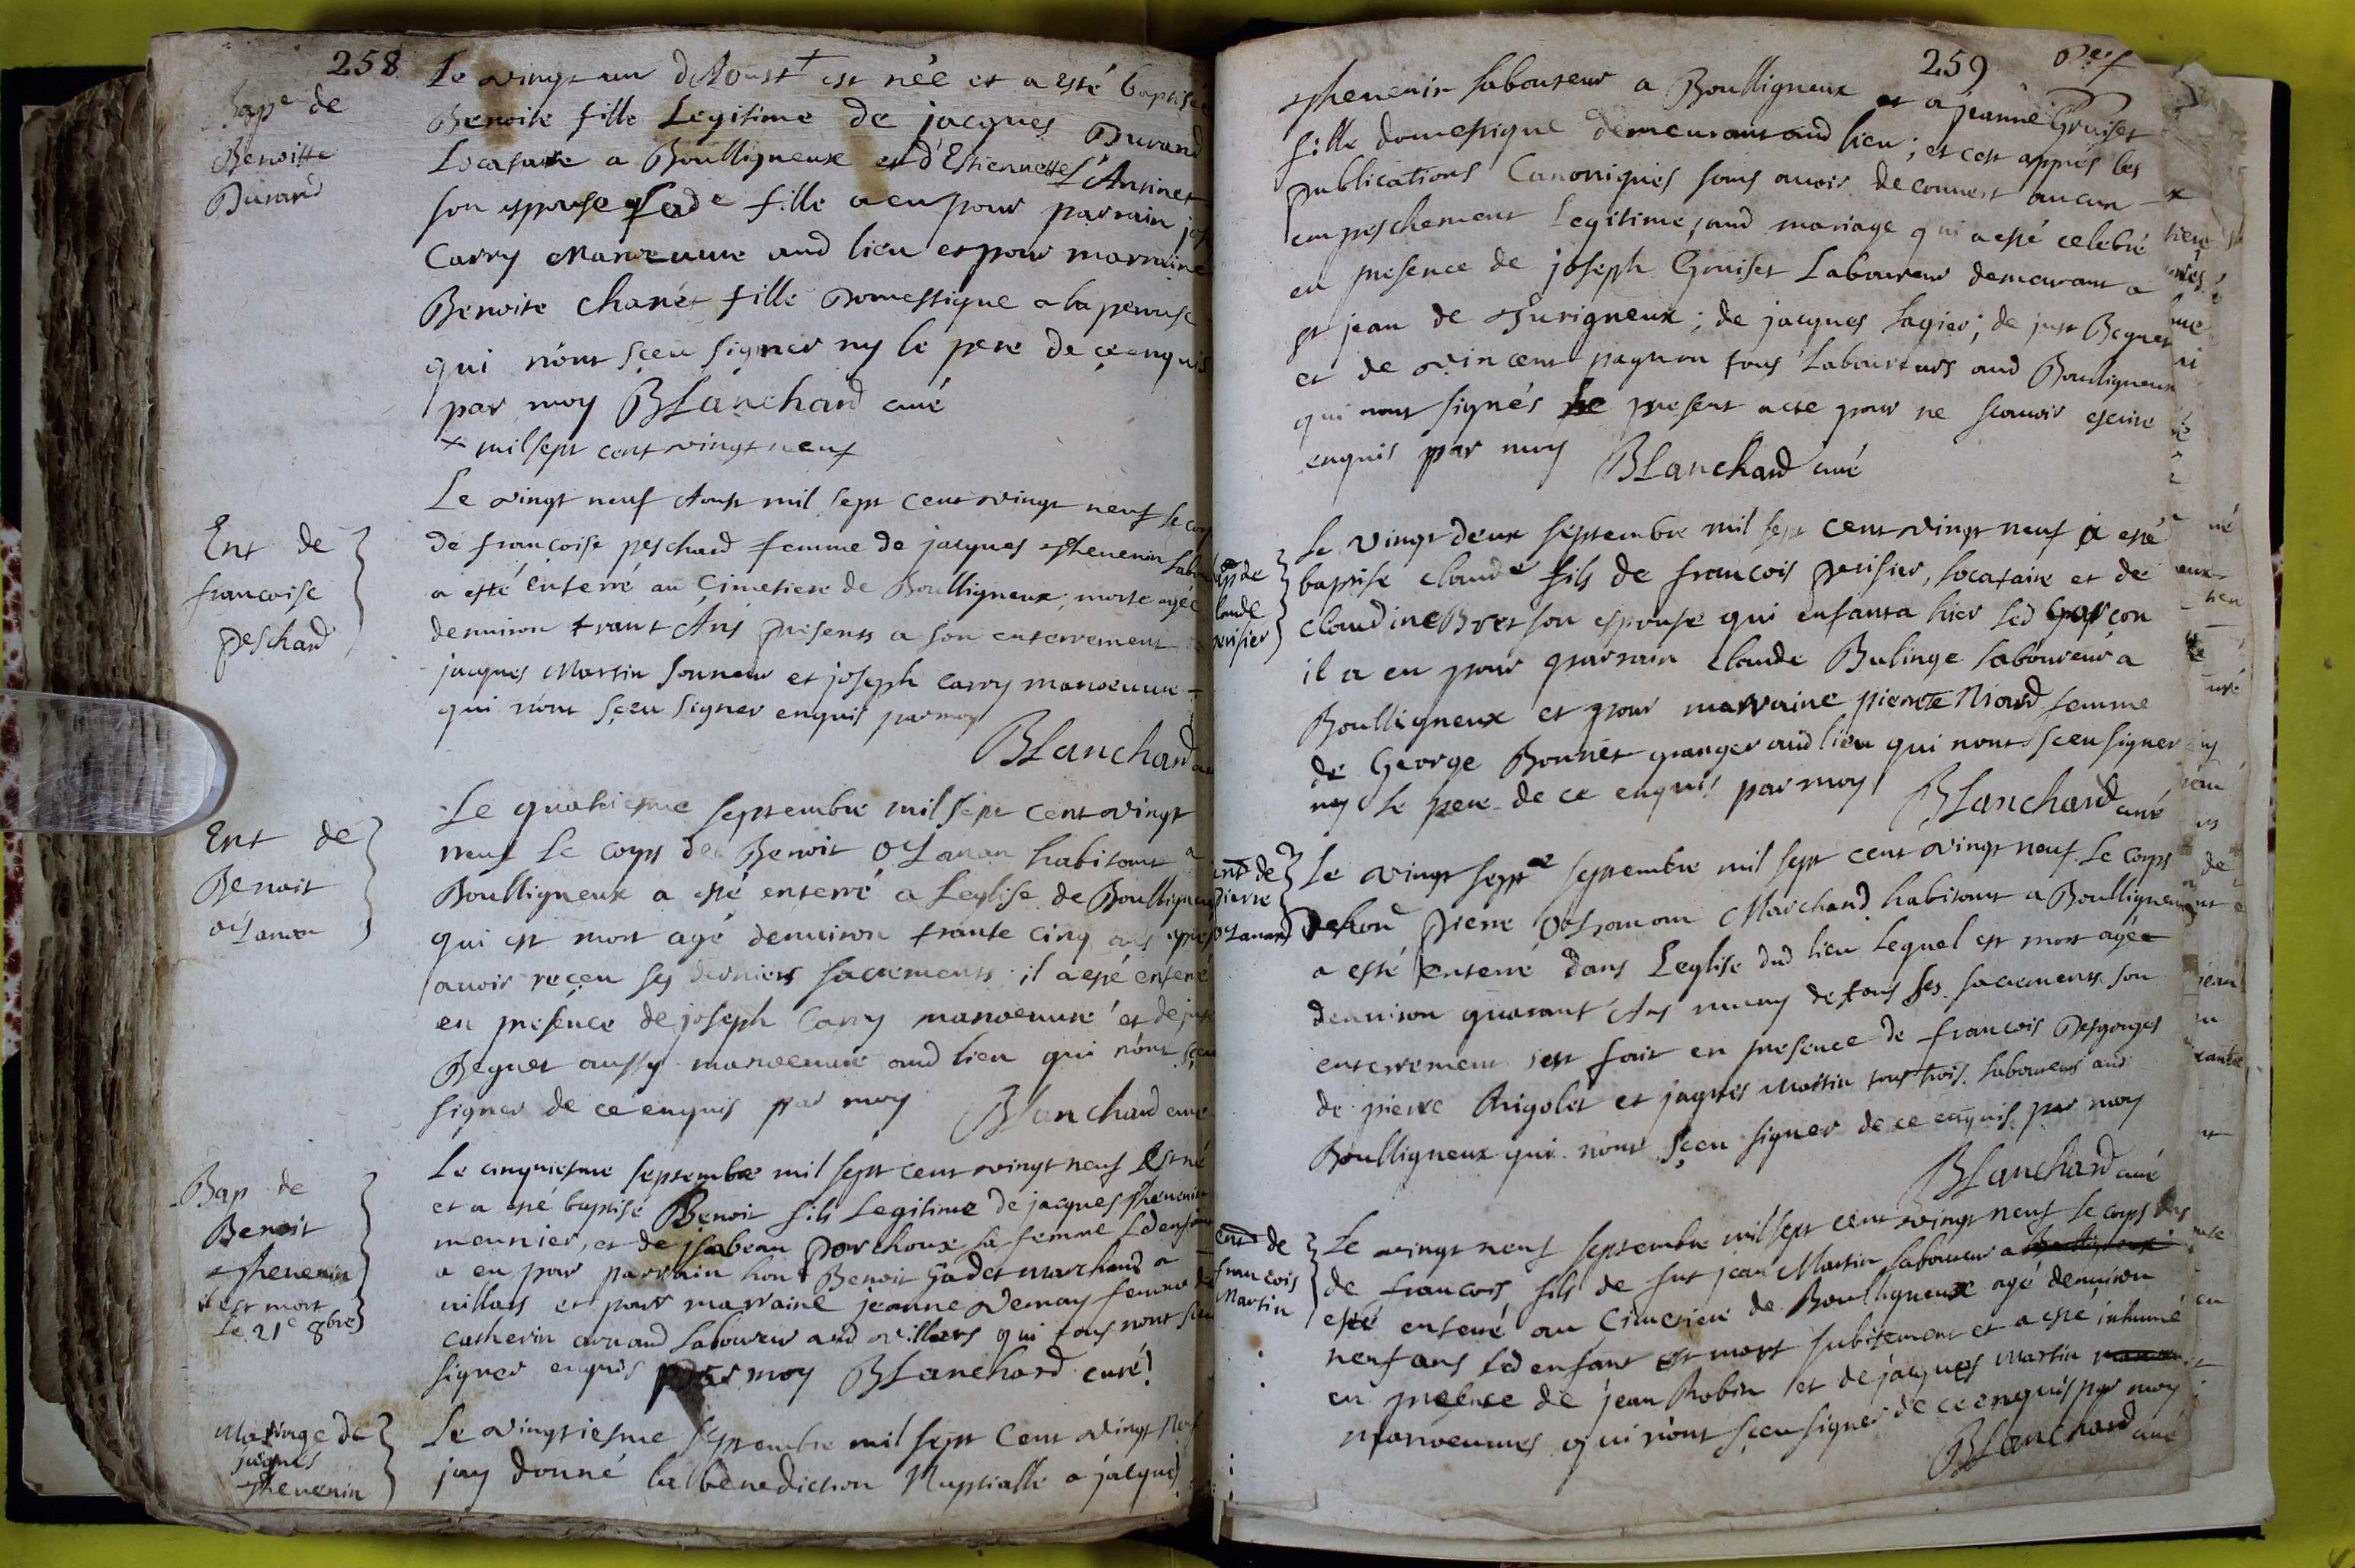 258
Bap^e de
Benoitte
Durand
Le vingt un d'Aoust + est née et a esté baptisée
Benoite fille Legitime de jacques Durand
Locataire a Boulligneux et d'Estiennette
son espouse lad^e fille a eu pour parrain
Carry Manoeuvre aud lieu et pour marraine
Benoite Chanét fille Domestique a la perouse
qui n'ont sçeu signer ny le pere de ce enquis
par moy BLanchard curé
+ mil sept cent vingt neuf
Ent de
francoise
peschard
Le vingt neuf Aoust mil sept cent vingt neuf le corp
de francoise peschard femme de jacques thevenin
a esté enterré au Cimetiere de Boulligneux, morte agée
denuiron trant Ans presents a son enterrement
jacques Martin sonneur et joseph carry manoeuure
qui n'ont sçeu signer enquis par moy
BLanchard
Ent de
Benoit
Le quatriesme septembre mil sept cent vingt
neuf Le corps de Benoit habitant a
Boulligneux a esté enterré a Leglise de Boulligneux
qui est mort agé denuiron trante cinq ans apres
auoir reçeu ses derniers sacrements il a esté enterré
en presence de joseph Carry manoeuure et de just
Beguet aussy manoeuure aud lieu qui n'ont sçeu
signer de ce enquis par moy BLanchard curé
Bap de
Benoit
thevenin
il est mort
le 21^e 8^bre
Le cinquiesme septembre mil sept cent vingt neuf Est né
et a esté baptisé Benoit fils Legitime de jacques thevenin
meunier, et de jsabeau porchoux sa femme led enfant
a eu par parrain hon^t Benoit Gadet marchand a
villars et pour marraine jeanne Vernay femme de
catherin arnaud Laboureur aud villars qui tous n'ont sceu
signer enquis par moy BLanchard curé
Mariage de
jacques
thevenin
Le vingtiesme septembre mil sept cent vingt neuf
jay donné la benediction Nuptialle a jacques
259
thevenin laboureur a Boulligneux et a jeanne Gruiset
fille domestique demeurant aud lieu; et cest appres les
publications Canoniques sans auoir decouuert aucun
empeschement Legitime, aud mariage qui a esté celebré
en presence de joseph Gruiset Laboureur demeurant a
st jean de Turigneux; de jacques Lagier; de just Beguet
et de vincent pagnon tous Laboureurs aud Boulligneux
qui n'ont signés le present acte pour ne scauoir escrire
enquis par moy BLanchard curé
Bap de
Claude
perisier
Le vingt deux septembre mil sept cent vingt neuf a esté
baptise claude fils de francois perisier, locataire et de
claudine Bret son espouse qui enfanta hier led garcon
il a eu pour parrain Claude Bulinge laboureur a
Boulligneux et pour marraine pierrete Niord femme
de George Bonnet granger aud lieu qui n'ont sceu signer
ny le pere de ce enquis par moy BLanchard curé
ent de
pierre
Le vingt sept^e septembre mil sept cent vingt neuf Le corps
pierre Marchand habitant a Boulligneux
a esté enterré dans Leglise dud lieu Lequel est mort agée
denuiron quarant Ans muny de tous ses sacrements son
enterrement s'est fait en presence de francois Desgouges
de pierre Rigolet et jaques Martin tous trois laboureurs aud
Boulligneux qui n'ont sçeu signer de ce enquis par moy
BLanchard curé
ent de
francois
Martin
Le vingt neuf septembre mil sept cent vingt neuf le corps
de francois fils de fut jean Martin laboureur a
esté enterré au Cimetiere de Boulligneux agé denuiron
neuf ans led enfant est mort subitement et a esté inhumé
en presence de jean Robin et de jacques Martin
manoeuures qui n'ont sçeu signer de ce enquis par moy
BLanchard curé